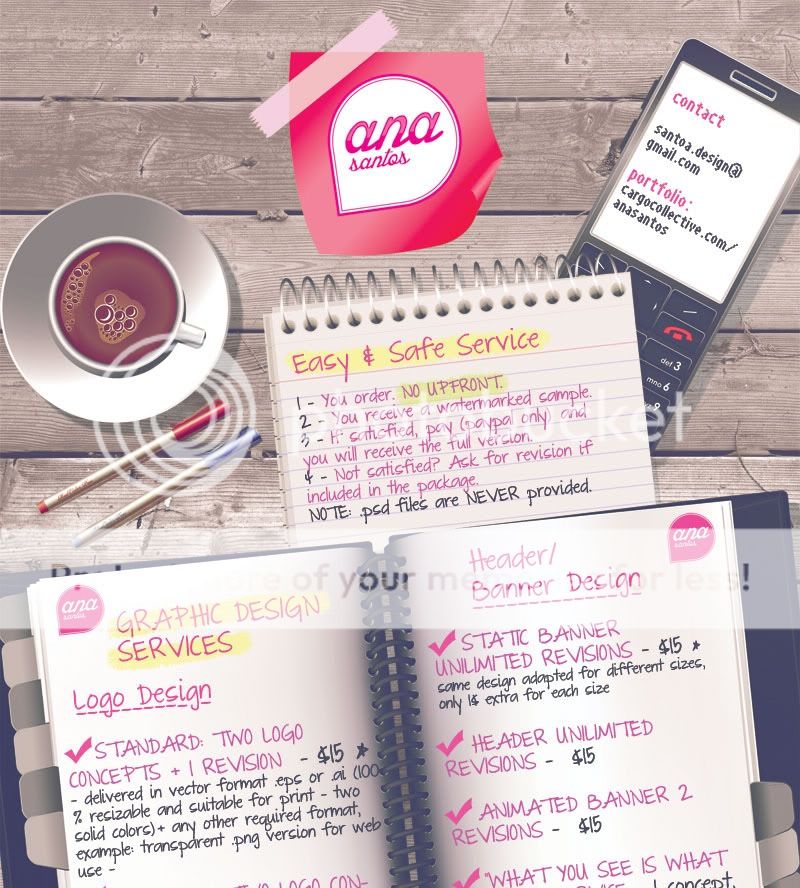 ana
santos
contact
santoa.design@
gmail.com
portfolio:
cargocollective.com/
anasantos
def 3
mno 6
Easy & Safe Service
1 - You order. NO UPFRONT.
2 - You receive a watermarked sample.
3 - If satisfied, pay (paypal only) and
you will receive the full version.
4 - Not satisfied? Ask for revision if
included in the package.
NOTE: .psd files are NEVER provided.
photobucket
of your for less!
ana
santos
GRAPHIC DESIGN
SERVICES
Logo Design
STANDARD: TWO LOGO
CONCEPTS + 1 REVISION - $15 *
- delivered in vector format .eps or .ai (100
% resizable and suitable for print - two
solid colors) + any other required format,
example: transparent .png version for web
use -
ana
santos
Header/
Banner Design
STATIC BANNER
UNLIMITED REVISIONS - $15 *
same design adapted for different sizes,
only 1$ extra for each size
HEADER UNLIMITED
REVISIONS - $15
ANIMATED BANNER 2
REVISIONS - $15
"WHAT YOU SEE IS WHAT
1 concept,